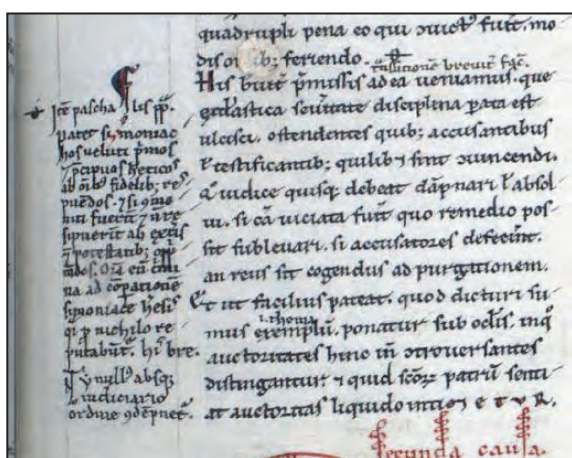 quadrupli pena eo qui ɔuict᷒ fuit̄. mo
dis oı̄b; feriendo.
t̄nsitione breuit̄ fac̄.
His breuit̄ p̄missis ad ea ueniamus. que
eccl̄astica seuitate disciplina parata est
ulcisci. ostendentes quib; accusantibus
ł testificantib; quilib& sint ɔuincendi.
a iudice quisq; debeat dāpnari ł absol
ui. si cā uiciata fuit̄ quo remedio pos
sit subleuari. si accusatores defecerīt.
an reus sit cogendus ad purgationem.
Et ut facilius pateat. quod dicturi su
i. thema
mus exemplū. ponatur sub oclīs. inq̊
auctoritates hinc in̄ ɔtrouersantes
distingantur ⁊ quid sc̄oꝝ patrū senti
at auctoritas liquido intiōETUR.
secunda causa.
Itē pascha lis pp̄.
patet simoniac
hos ueluti p̄mos
⁊ p̄cipuos h̄eticos
ab oı̄b᷒ fidelib; res
puēdos. ⁊ si ɔmo
niti fuerīt ⁊ ñ re
sipuerīt ab ext̄is
⁊ potestatib; opp̄
mēdos. Oı̄a eīm cri
na ad cōpationē
symoniace h̄esis
q̄i p nichilo re
putabūt̄. hi bre.
Qđ null᷒ absq;
iudiciario
ordine ɔdēpnet̄.